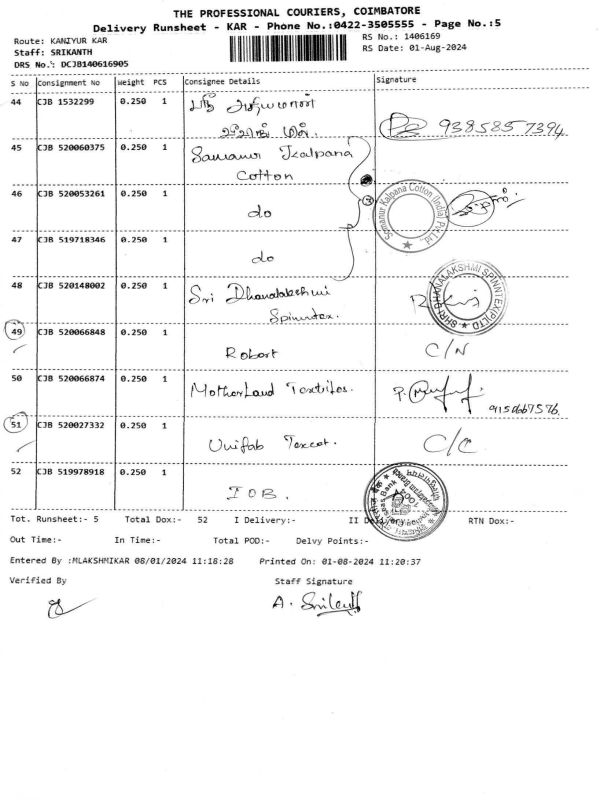 THE PROFESSIONAL COURIERS, COIMBATORE
Delivery Runsheet - KAR - Phone No.:0422-3505555 - Page No.:5
Route: KANIYUR KAR RS No.: 1406169
Staff: SRIKANTH RS Date: 01-Aug-2024
DRS No.: DCJB140616905
S No Consignment No Weight PCS Consignee Details Signature
44 CJB 1532299 0.250 1 9385857394
45 CJB 520060375 0.250 1 Somanur Kalpana
Cotton
46 CJB 520053261 0.250 1 do Somanur Kalpana Cotton (India) Pvt. Ltd.
47 CJB 519718346 0.250 1 do
48 CJB 520148002 0.250 1 Sri Dhanalakshmi
Spinntex. SHRI DHANALAKSHMI SPINNTEX (P) LTD
49 CJB 520066848 0.250 1 Robort C/N
50 CJB 520066874 0.250 1 Motherland Textiles.
51 CJB 520027332 0.250 1 Unifab Texcot. C/C
52 CJB 519978918 0.250 1 IOB.
Tot. Runsheet:- 5 Total Dox:- 52 I Delivery:- II Delivery:- RTN Dox:-
Out Time:- In Time:- Total POD:- Delvy Points:-
Entered By :MLAKSHMIKAR 08/01/2024 11:18:28 Printed On: 01-08-2024 11:20:37
Verified By Staff Signature